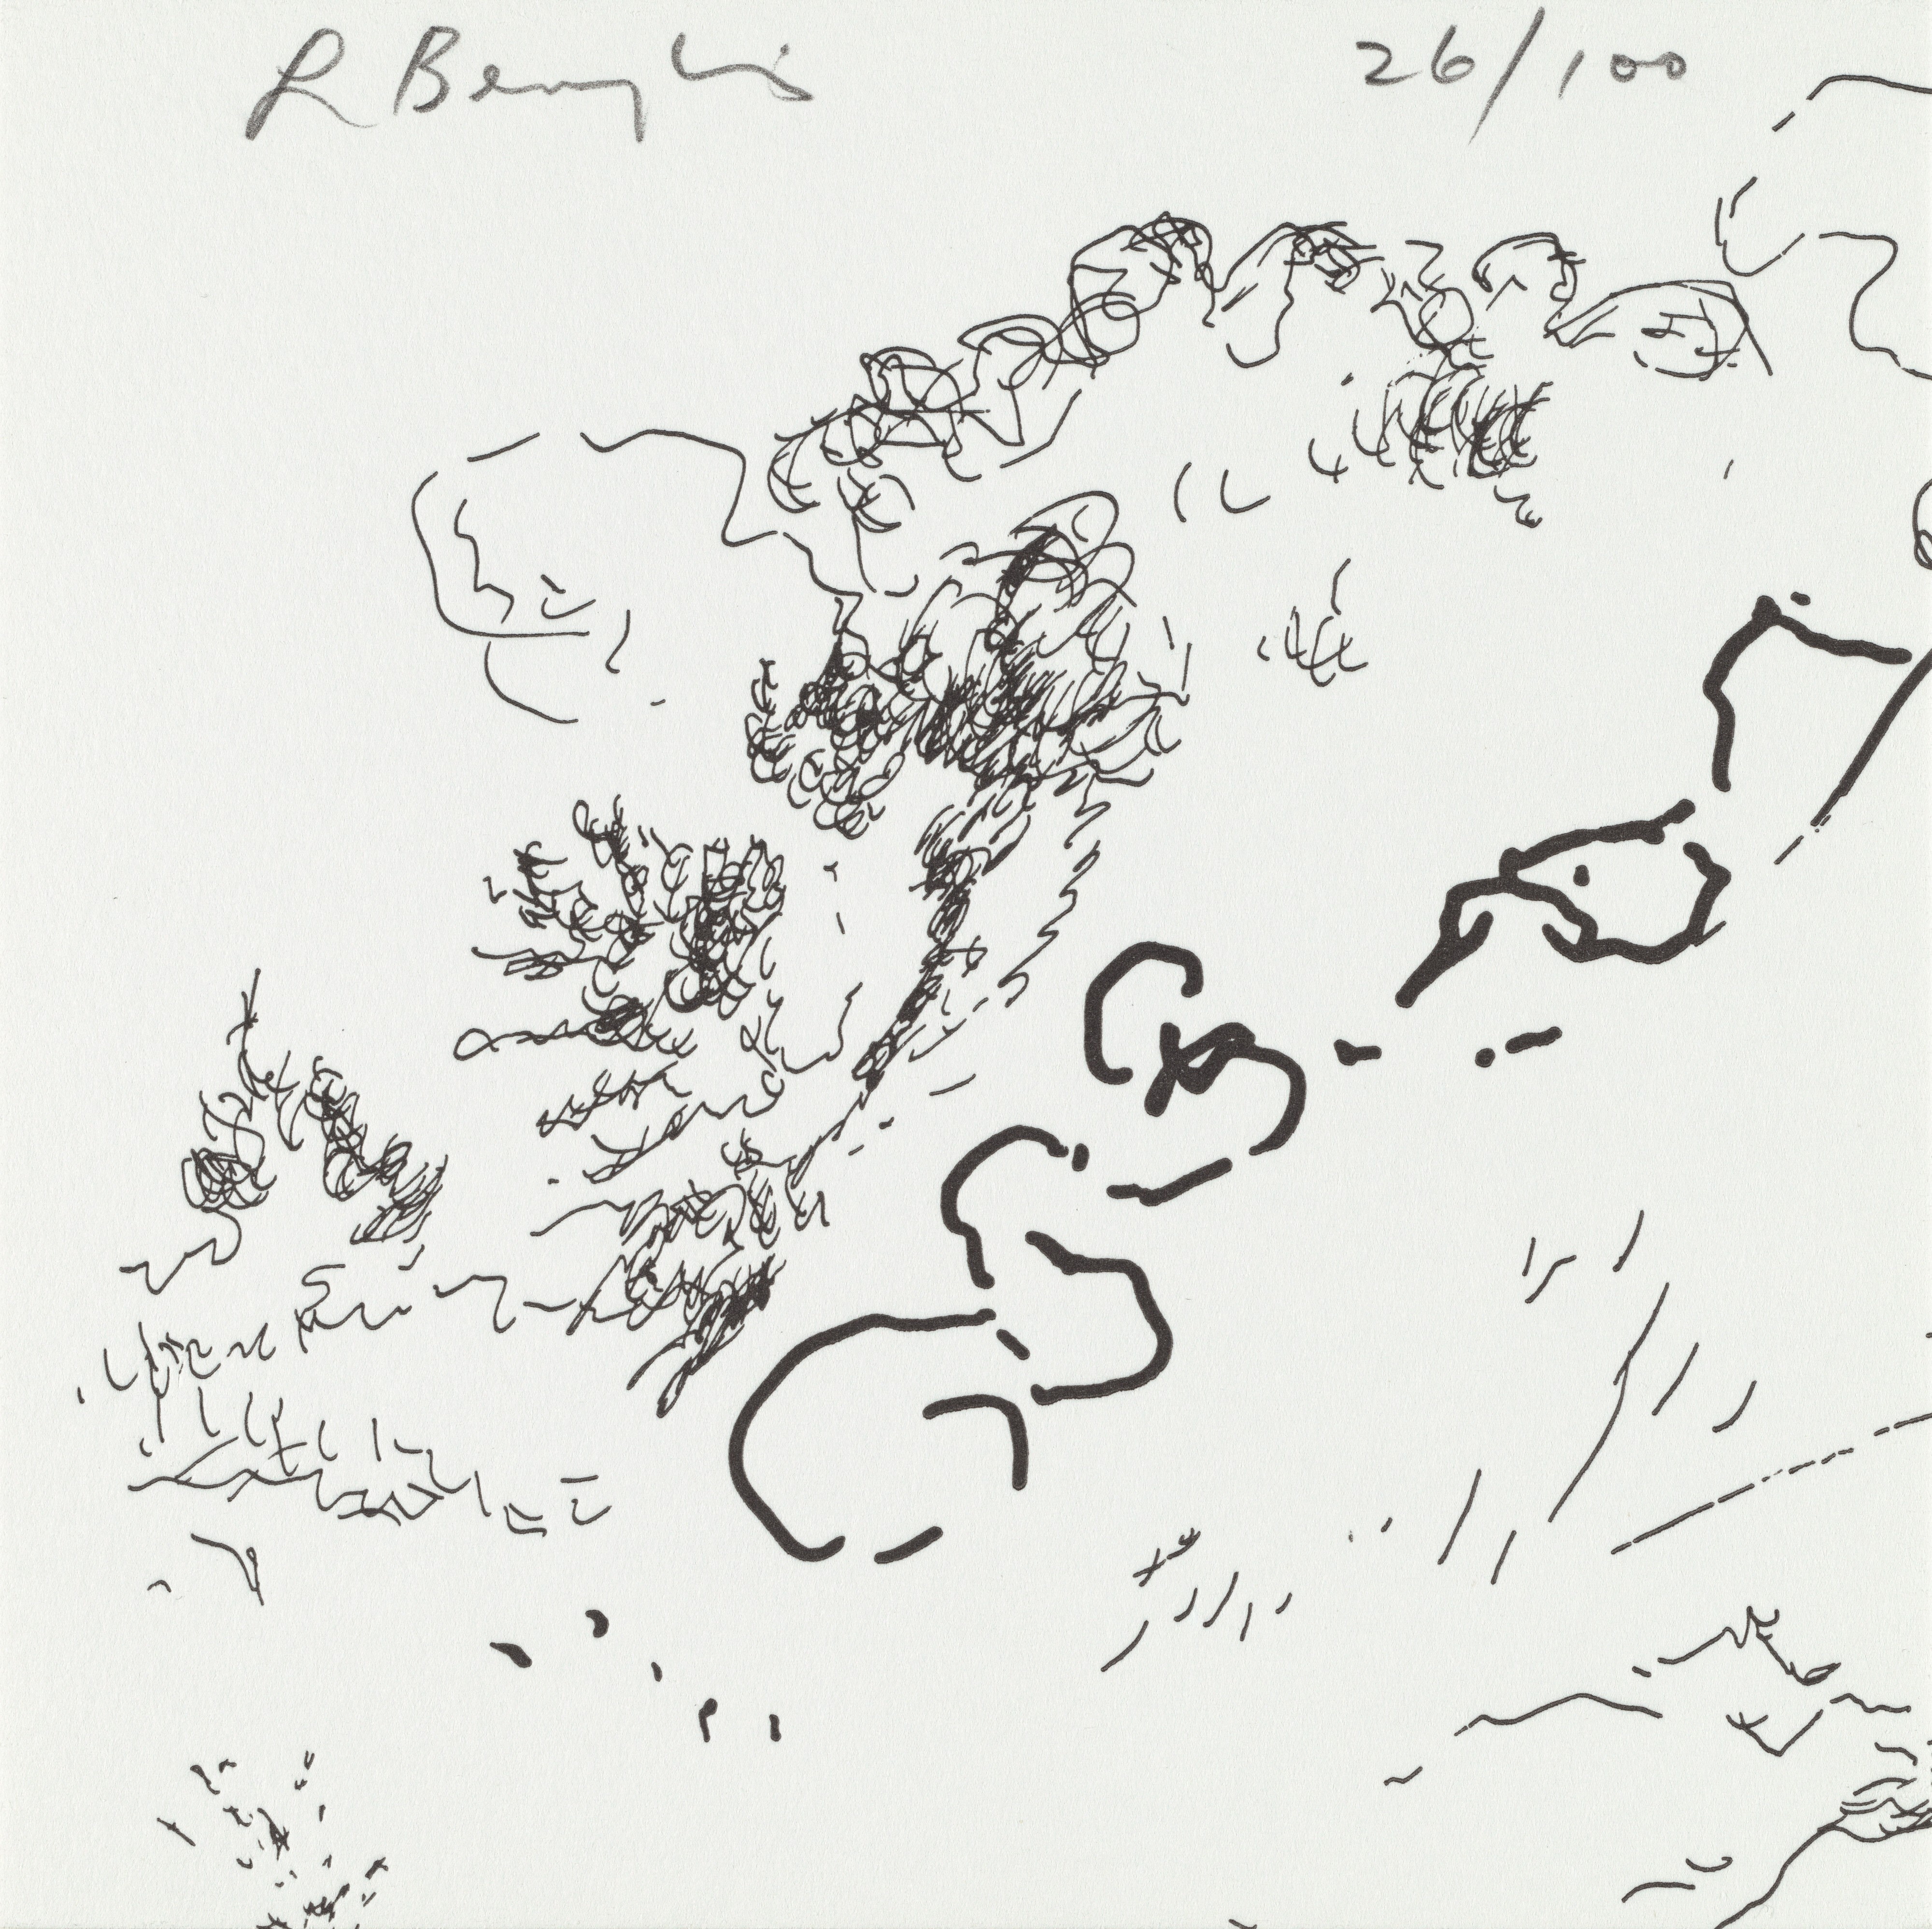 L Benglis 26/100